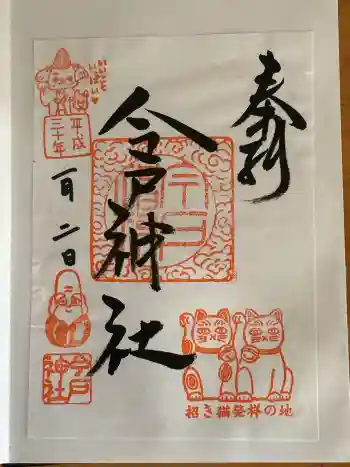 奉拝
今戸神社
平成
三十年
一月二日
今戸
神社
招き猫発祥の地